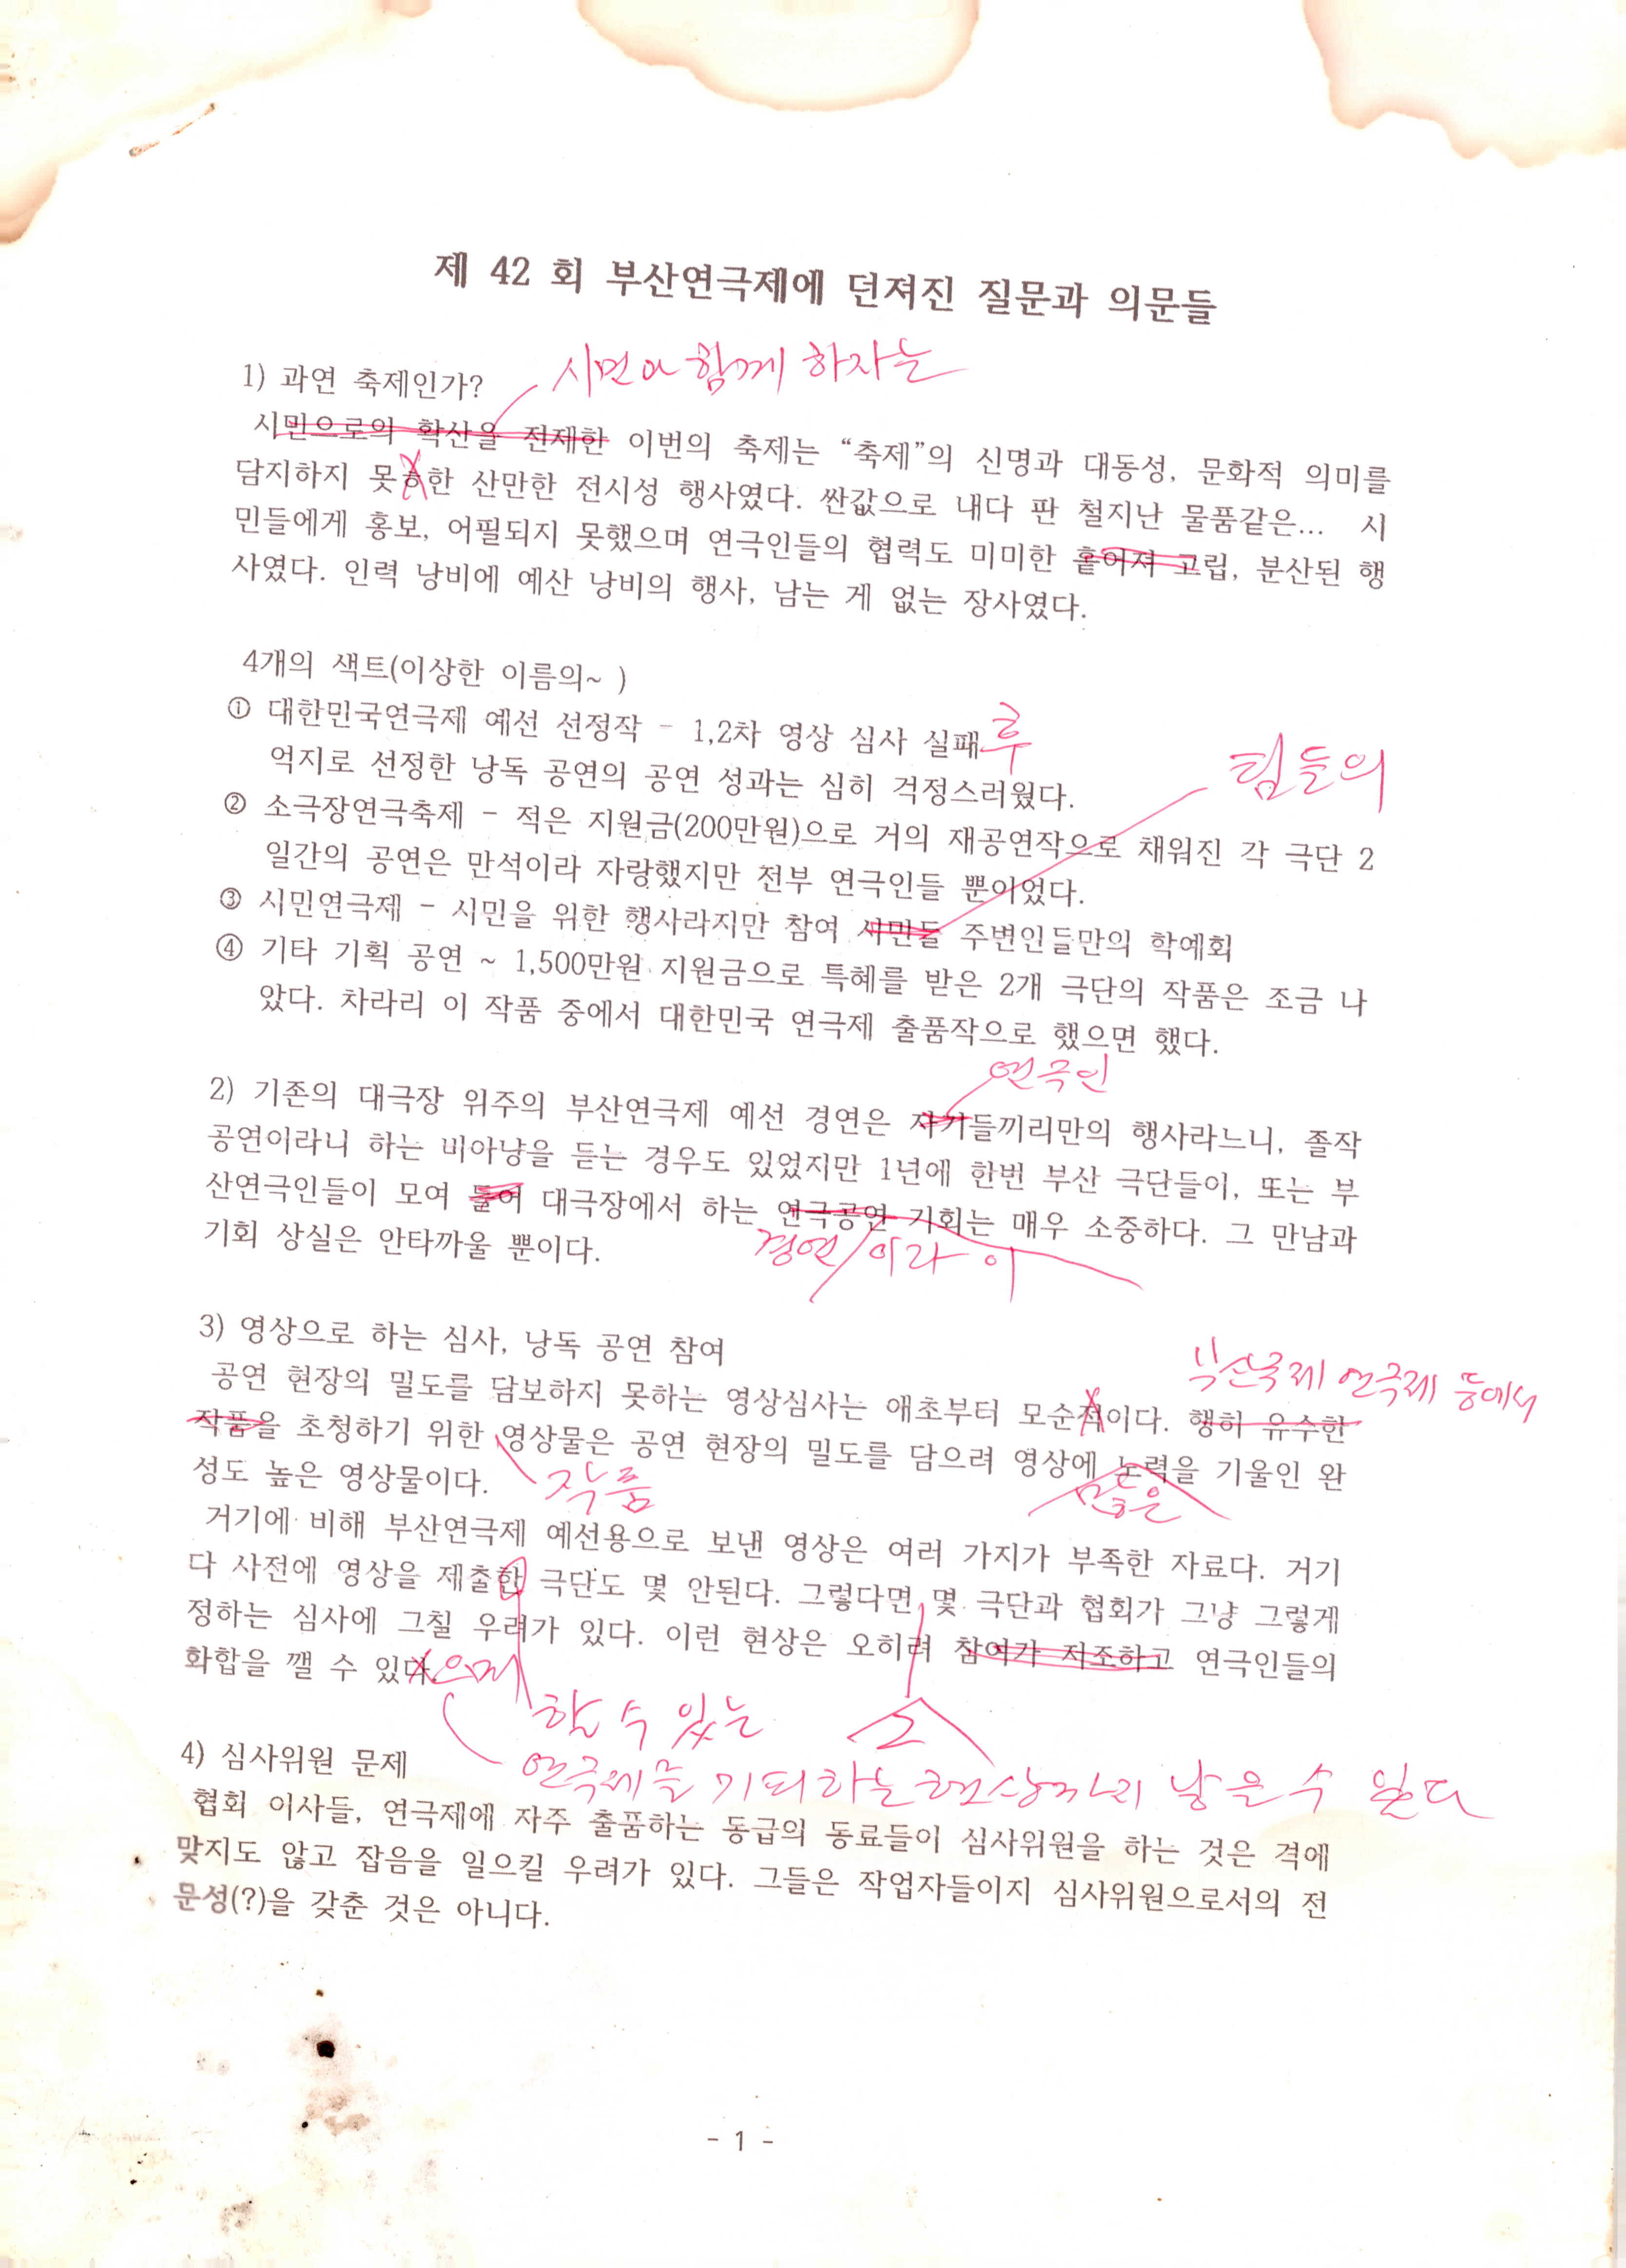 제 42 회 부산연극제에 던져진 질문과 의문들
1) 과연 축제인가?
시민과 함께 하자는
시민으로의 확산을 전재한 이번의 축제는 “축제”의 신명과 대동성, 문화적 의미를
담지하지 못ㅎ한 산만한 전시성 행사였다. 싼값으로 내다 판 철지난 물품같은... 시
민들에게 홍보, 어필되지 못했으며 연극인들의 협력도 미미한 흩어져 고립, 분산된 행
사였다. 인력 낭비에 예산 낭비의 행사, 남는 게 없는 장사였다.
4개의 색트(이상한 이름의~ )
① 대한민국연극제 예선 선정작 - 1,2차 영상 심사 실패 후
억지로 선정한 낭독 공연의 공연 성과는 심히 걱정스러웠다.
팀들의
② 소극장연극축제 - 적은 지원금(200만원)으로 거의 재공연작으로 채워진 각 극단 2
일간의 공연은 만석이라 자랑했지만 전부 연극인들 뿐이었다.
③ 시민연극제 - 시민을 위한 행사라지만 참여 시민들 주변인들만의 학예회
④ 기타 기획 공연 ~ 1,500만원 지원금으로 특혜를 받은 2개 극단의 작품은 조금 나
았다. 차라리 이 작품 중에서 대한민국 연극제 출품작으로 했으면 했다.
연극인
2) 기존의 대극장 위주의 부산연극제 예선 경연은 자기들끼리만의 행사라느니, 졸작
공연이라니 하는 비아냥을 듣는 경우도 있었지만 1년에 한번 부산 극단들이, 또는 부
산연극인들이 모여 들어 대극장에서 하는 연극공연 기회는 매우 소중하다. 그 만남과
경연 이라 이
기회 상실은 안타까울 뿐이다.
3) 영상으로 하는 심사, 낭독 공연 참여
부산국제연극제 등에서
공연 현장의 밀도를 담보하지 못하는 영상심사는 애초부터 모순적이다. 행히 유수한
작품을 초청하기 위한 영상물은 공연 현장의 밀도를 담으려 영상에 노력을 기울인 완
작품
많은
성도 높은 영상물이다.
거기에 비해 부산연극제 예선용으로 보낸 영상은 여러 가지가 부족한 자료다. 거기
다 사전에 영상을 제출한 극단도 몇 안된다. 그렇다면 몇 극단과 협회가 그냥 그렇게
정하는 심사에 그칠 우려가 있다. 이런 현상은 오히려 참여가 저조하고 연극인들의
화합을 깰 수 있다. 으며
할 수 있는
그
연극제를 기피하는 현상까지 낳을 수 있다
4) 심사위원 문제
협회 이사들, 연극제에 자주 출품하는 동급의 동료들이 심사위원을 하는 것은 격에
맞지도 않고 잡음을 일으킬 우려가 있다. 그들은 작업자들이지 심사위원으로서의 전
문성(?)을 갖춘 것은 아니다.
- 1 -